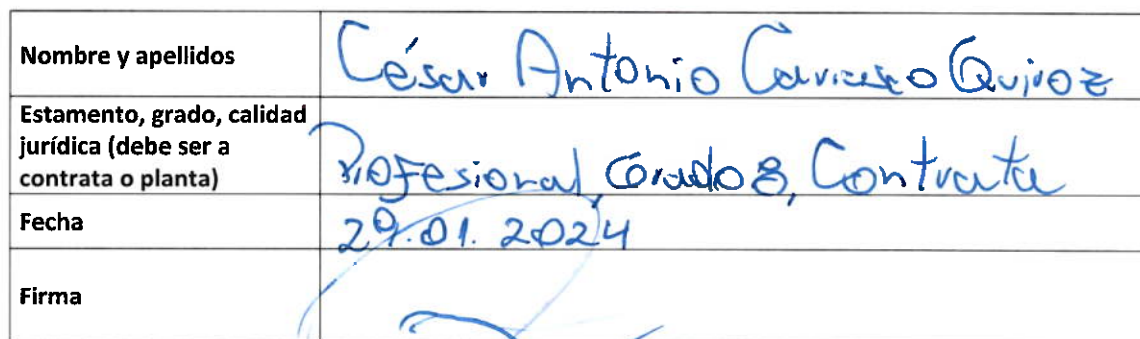 Nombre y apellidos
César Antonio Carrasco Quiroz
Estamento, grado, calidad
jurídica (debe ser a
contrata o planta)
Profesional, Grado 8, Contrata
Fecha
29.01.2024
Firma